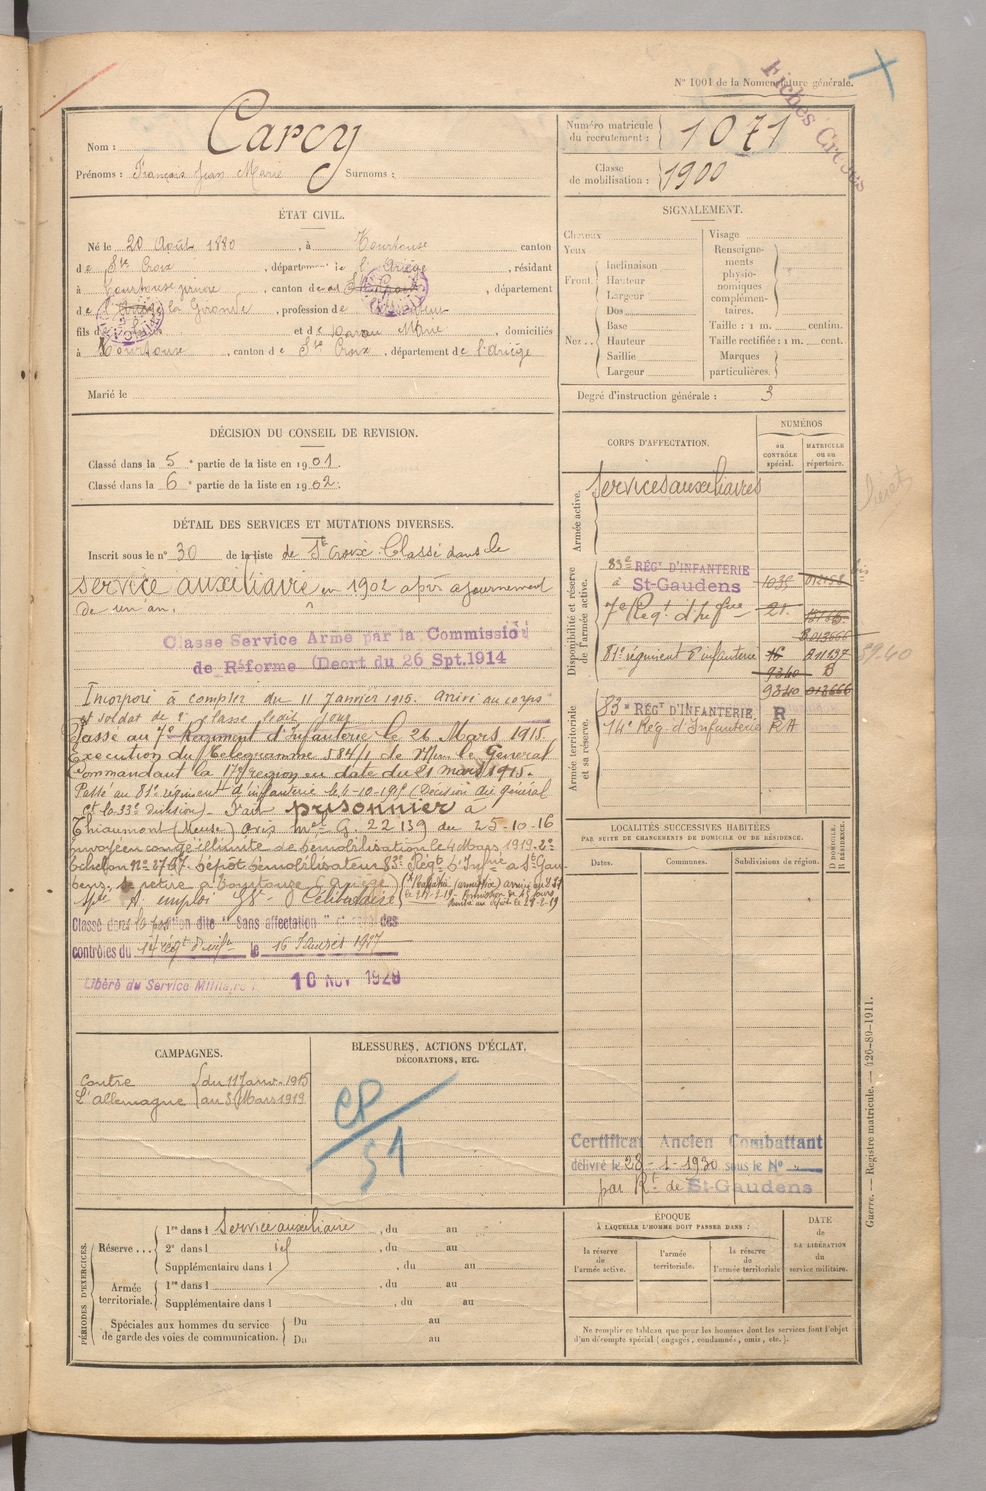 N° 1001 de la Nomenclature générale.
Fiches Croisés
Nom : Carcy
Prénoms : François Jean Marie Surnoms :
Numéro matricule du recrutement : 1071
Classe de mobilisation : 1900
ÉTAT CIVIL.
Né le 20 Août 1880, à Tourtouse canton
de Ste Croix, département de l'Ariège, résidant
à Tourtouse, canton de, département
de la Gironde, profession de
fils de et de Darou Marie, domiciliés
à Tourtouse, canton de Ste Croix, département de l'Ariège
Marié le
SIGNALEMENT.
Cheveux
Yeux
Front. Inclinaison
Hauteur
Largeur
Nez Dos
Base
Hauteur
Saillie
Largeur
Visage
Renseignements physionomiques complémentaires.
Taille : 1 m. centim.
Taille rectifiée : 1 m. cent.
Marques particulières.
Degré d'instruction générale : 3
DÉCISION DU CONSEIL DE REVISION.
Classé dans la 5e partie de la liste en 1901.
Classé dans la 6e partie de la liste en 1902.
DÉTAIL DES SERVICES ET MUTATIONS DIVERSES.
Inscrit sous le n° 30 de la liste de Ste Croix Classé dans le
service auxiliaire en 1902 après ajournement
de un an.
Classe Service Armé par la Commission
de Réforme (Decrt du 26 Spt. 1914
Incorporé à compter du 11 Janvier 1915. Arrivé au corps
et soldat de 2e classe le dit jour
Passé au 7e Régiment d'Infanterie le 21 Mars 1915
Execution du Télégramme 584/1 de Mr le Général
Commandant la 17e région en date du 21 mars 1915.
Passé au 81e régiment d'infanterie le 4-10-15 (Décision du général
Ct la 33e division). Fait prisonnier à
Thiaumont (Meuse) avis mel G. 22139 du 25.10.16
Envoyé en congé illimité de démobilisation le 4 Mars 1919. 2e
Echelon n° 3767. dépôt démobilisateur 83e Régt d'Infrie à St Gau-
dens. Se retire à Tourtouse (Ariège)
Célibataire
Classé dans la position dite "Sans affectation" des
contrôles du 14e régt d'infie le 16 Janvier 1927
Libéré du Service Militaire 10 Nov 1929
CORPS D'AFFECTATION.
NUMÉROS
au CONTRÔLE spécial.
MATRICULE ou au répertoire.
Armée active.
Services auxiliaires
Disponibilité et réserve de l'armée active.
83e RÉGt D'INFANTERIE
à St-Gaudens
7e Régt d'Infrie 21.
81e régiment d'infanterie 16 211137
9340 B
9340 013666
5940
Armée territoriale et sa réserve.
83e RÉGt D'INFANTERIE. R
14e Rég d'Infanterie RA
LOCALITÉS SUCCESSIVES HABITÉES
PAR SUITE DE CHANGEMENTS DE DOMICILE OU DE RÉSIDENCE.
Dates.
Communes.
Subdivisions de région.
D DOMICILE. R RÉSIDENCE.
Certificat Ancien Combattant
délivré le 28-1-1930 sous le N°
par Rt de St-Gaudens
CAMPAGNES.
Contre L'Allemagne du 11 Janv. 1915 au 3 Mars 1919
BLESSURES, ACTIONS D'ÉCLAT,
DÉCORATIONS, ETC.
CP
51
PÉRIODES D'EXERCICES.
Réserve... 1re dans l Service auxiliaire, du au
2e dans l id, du au
Supplémentaire dans l, du au
Armée territoriale. 1re dans l, du au
Supplémentaire dans l, du au
Spéciales aux hommes du service de garde des voies de communication. Du au
Du au
ÉPOQUE
À LAQUELLE L'HOMME DOIT PASSER DANS :
la réserve de l'armée active.
l'armée territoriale.
la réserve de l'armée territoriale
DATE de LA LIBÉRATION du service militaire.
Ne remplir ce tableau que pour les hommes dont les services font l'objet
d'un décompte spécial (engagés, condamnés, omis, etc.).
Guerre. — Registre matricule. — 426-89-1911.